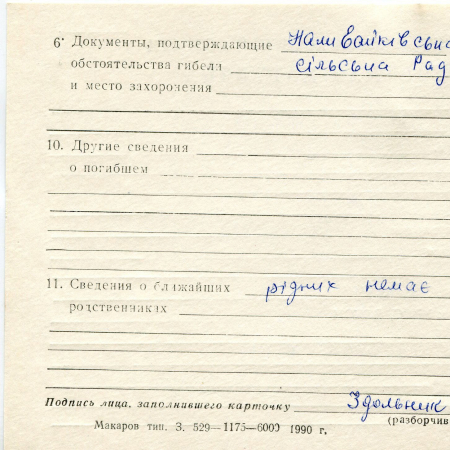 6· Документы, подтверждающие НалиВайківська
обстоятельства гибели сільська Рад
и место захоронения
10. Другие сведения
о погибшем
11. Сведения о ближайших рідних немає
родственниках
Подпись лица, заполнившего карточку Здольник
(разборчив
Макаров тип. З. 529—1175—6000 1990 г.